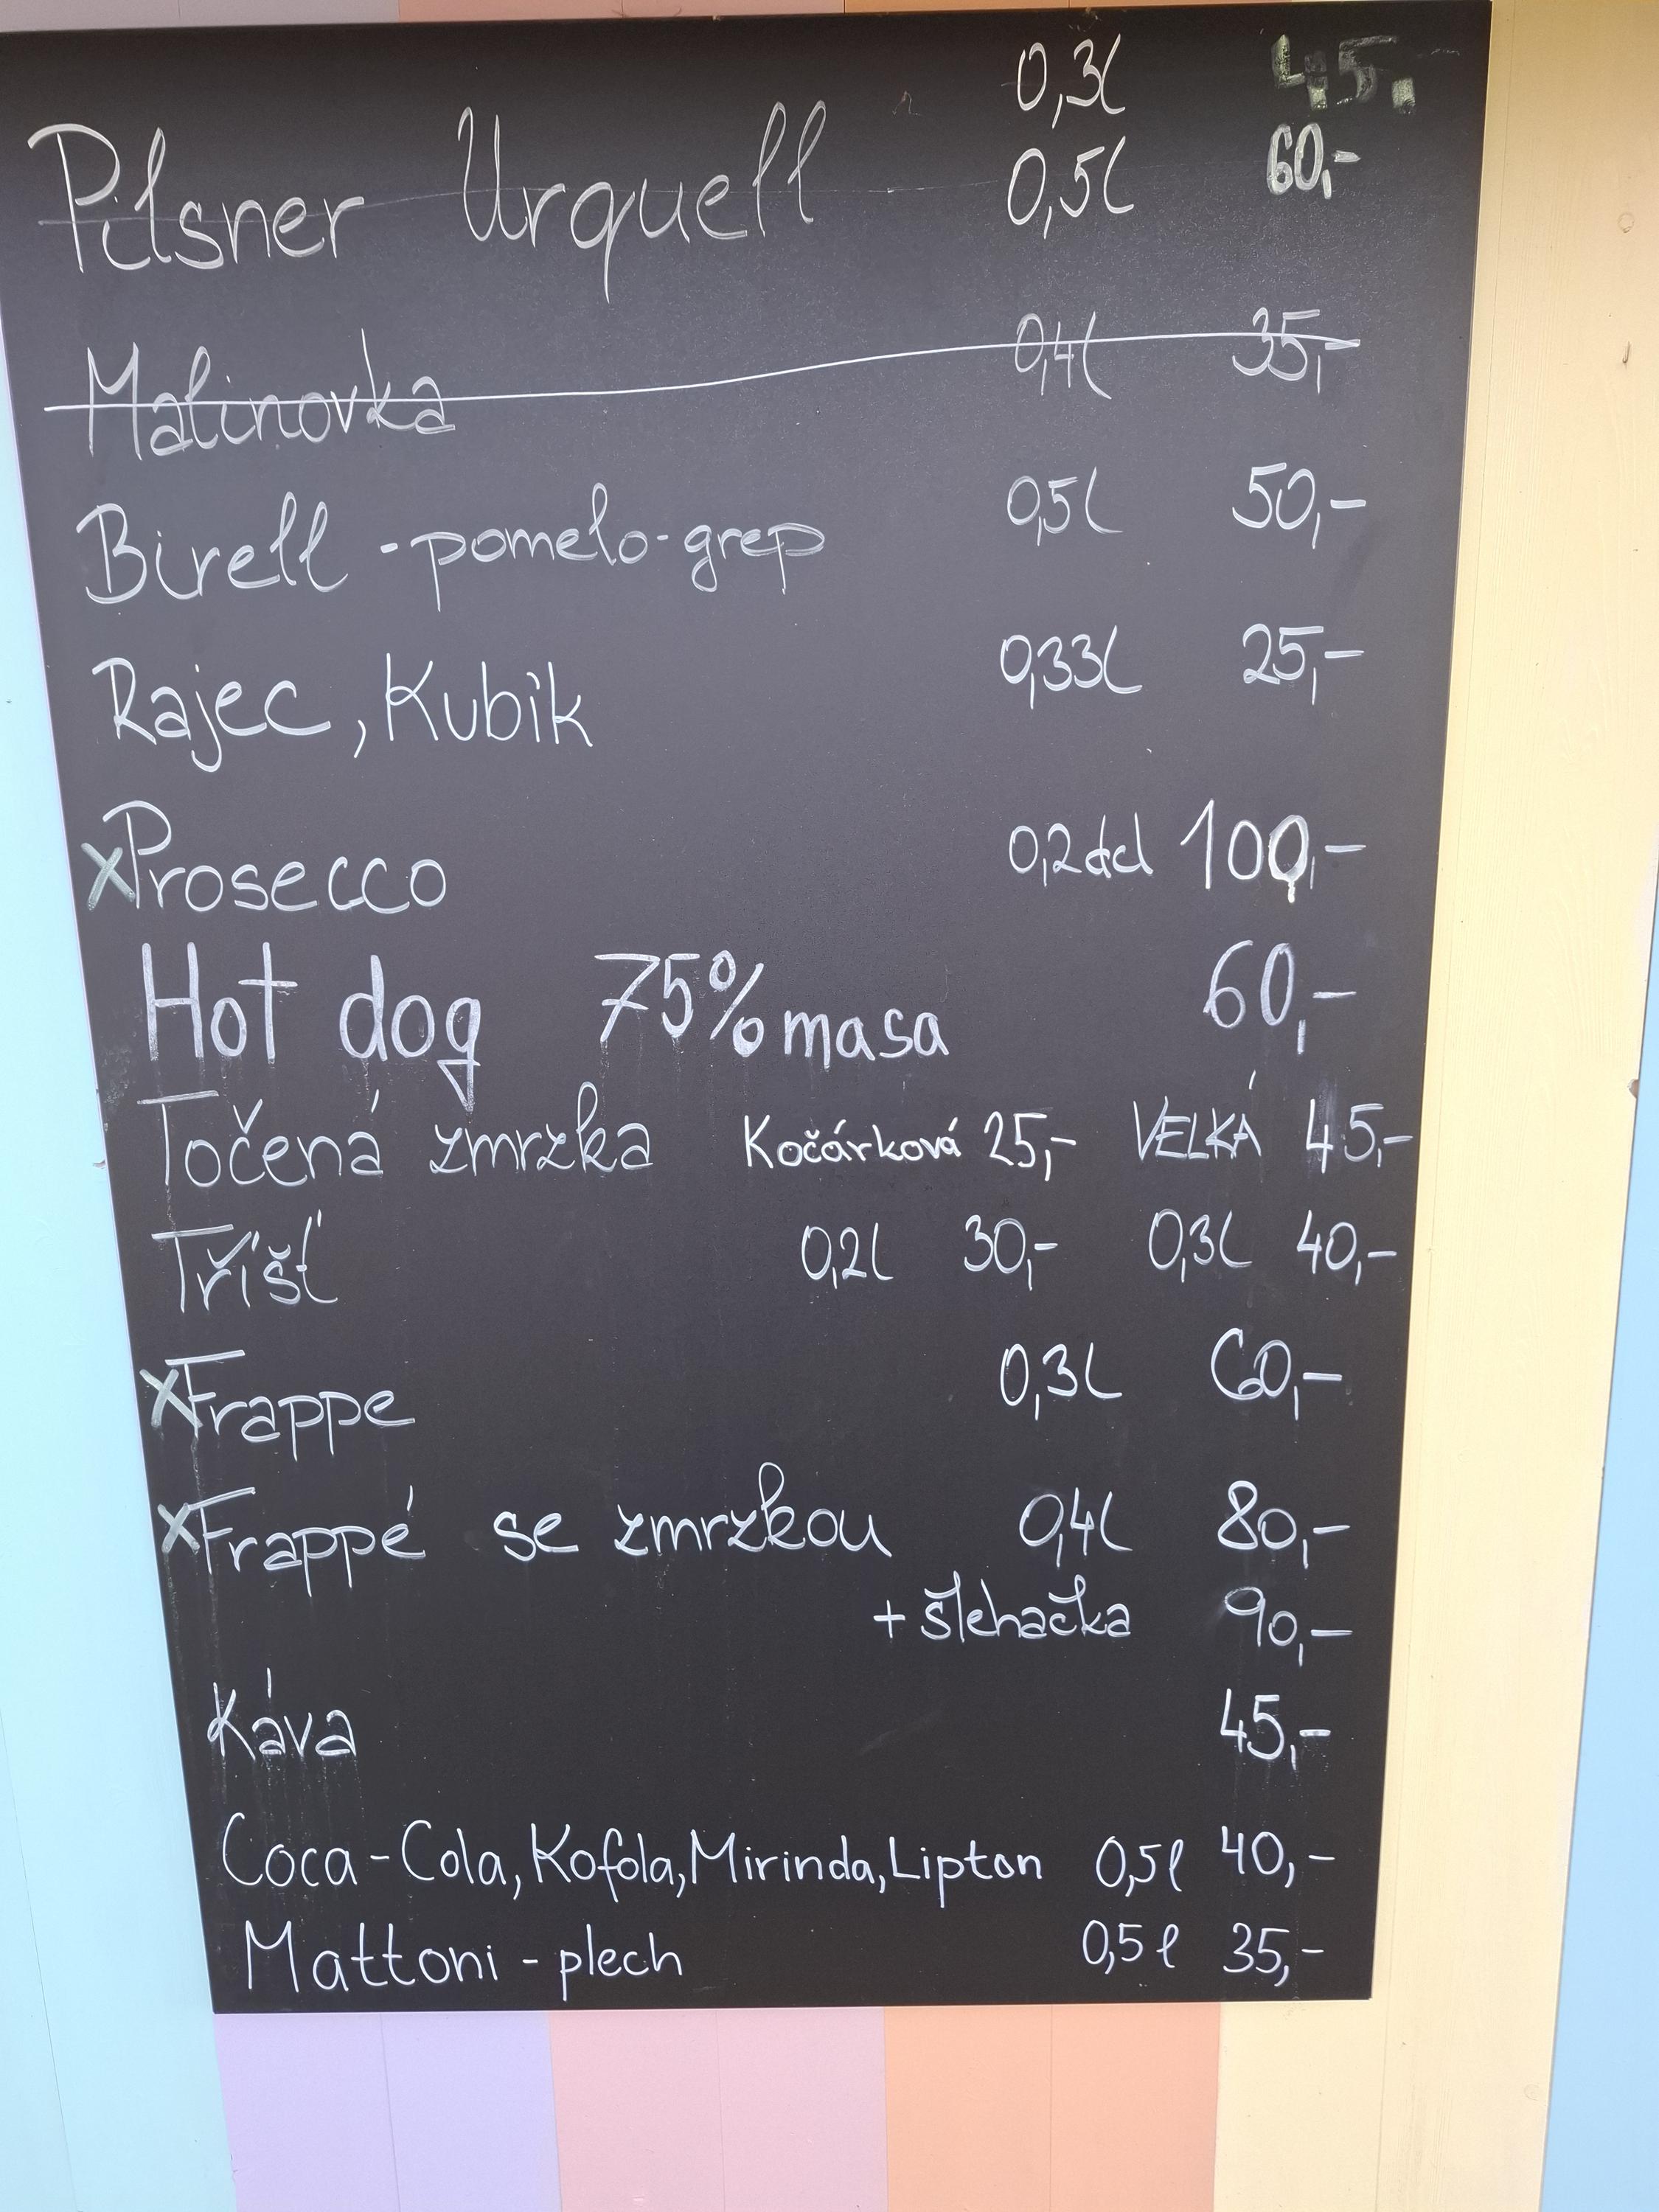 0,3l 45,-
Pilsner Urquell 0,5l 60,-
Malinovka 0,4l 35,-
Birell - pomelo - grep 0,5l 50,-
Rajec, Kubík 0,33l 25,-
x Prosecco 0,2dcl 100,-
Hot dog 75% masa 60,-
Točená zmrzka Kočárková 25,- VELKÁ 45,-
Tříšť 0,2l 30,- 0,3l 40,-
x Frappe 0,3l 60,-
x Frappé se zmrzkou 0,4l 80,-
+ šlehačka 90,-
Káva 45,-
Coca-Cola, Kofola, Mirinda, Lipton 0,5l 40,-
Mattoni - plech 0,5l 35,-